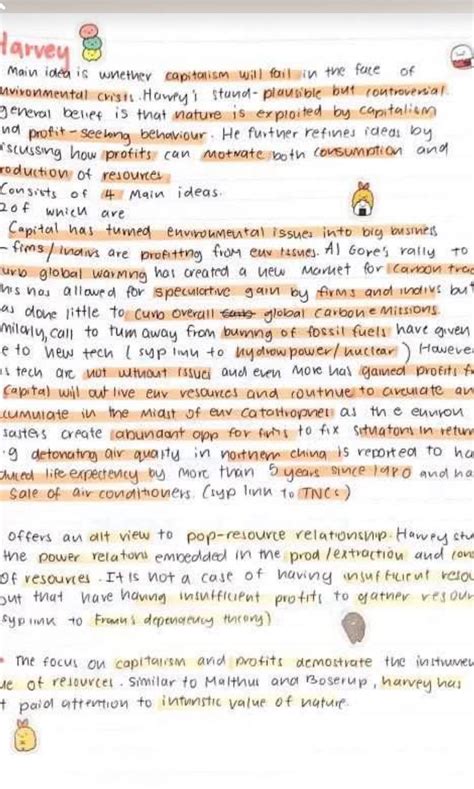 Harvey
Main idea is whether capitalism will fail in the face of
nvironmental crisis. Harvey's stand - plausible but controversial.
general belief is that nature is exploited by capitalism
nd profit-seeking behaviour. He further refines ideas by
iscussing how profits can motivate both consumption and
roduction of resources
Consists of 4 Main ideas.
2 of which are
Capital has turned environmental issues into big business
- firms/indivs are profitting from env issues. Al Gore's rally to
curb global warming has created a new market for carbon trad
his has allowed for speculative gain by firms and indivs but
as done little to curb overall global carbon emissions.
milarly, call to turn away from burning of fossil fuels have given
e to new tech (syp link to hydropower/nuclear) However
s tech are not without issues and even more has gained profits f
Capital will out live env resources and continue to circulate an
cumulate in the midst of env catastrophes as the environ
sasters create abundant opp for firms to fix situations in return
.g detonating air quality in northern china is reported to ha
duced life expectency by more than 5 years since 1980 and ha
sale of air conditioners. (syp link to TNCs)
offers an alt view to pop-resource relationship. Harvey stu
the power relations embedded in the prod/extraction and cons
of resources. It is not a case of having insufficient resou
but that have having insufficient profits to gather resour
syp link to Frank's dependency theory)
The focus on capitalism and profits demostrate the instrumen
ue of resources. Similar to Malthus and Boserup, harvey has
t paid attention to intrinstic value of nature.